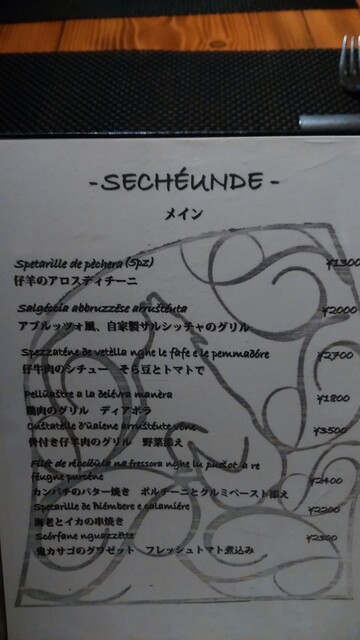 -SECHÉUNDE-
メイン
Spetarille de pèchera (5pz) ¥1300
仔羊のアロスティチーニ
Salgéccia abbruzzése arrustéuta ¥2000
アブルッツォ風、自家製サルシッチャのグリル
Spezzaténe de vetèlla nghe le fafe e le pemmadóre ¥2700
仔牛肉のシチュー そら豆とトマトで
Pellùastre a la delévra manèra ¥1800
鶏肉のグリル ディアボラ
arrustéute ¥3500
骨付き仔羊肉のグリル 野菜添え
na fressora nghe ¥2400
カンパチのバター焼き ポルチーニとグルミペースト添え
Spetarille de hiémbere e calamière ¥2200
海老とイカの串焼き
Scérfane nguazzétte ¥2300
鬼カサゴのグワゼット フレッシュトマト煮込み